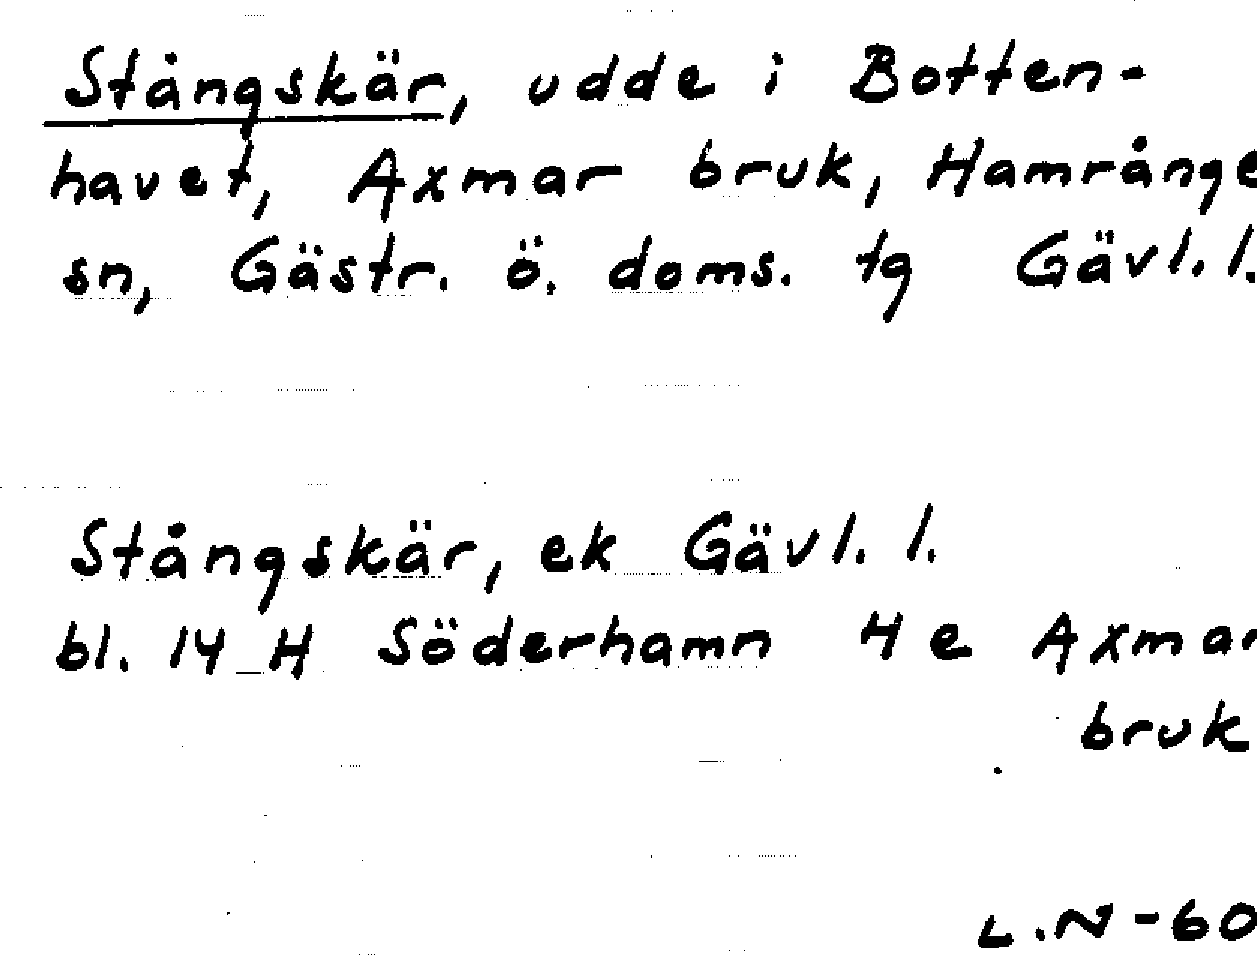 Stångskär, udde i Botten-
havet, Axmar bruk, Hamrånge
sn, Gästr. ö. doms. tg Gävl. l.
Stångskär, ek Gävl. l.
bl. 14 H Söderhamn 4 e Axmar
bruk
L.N-60